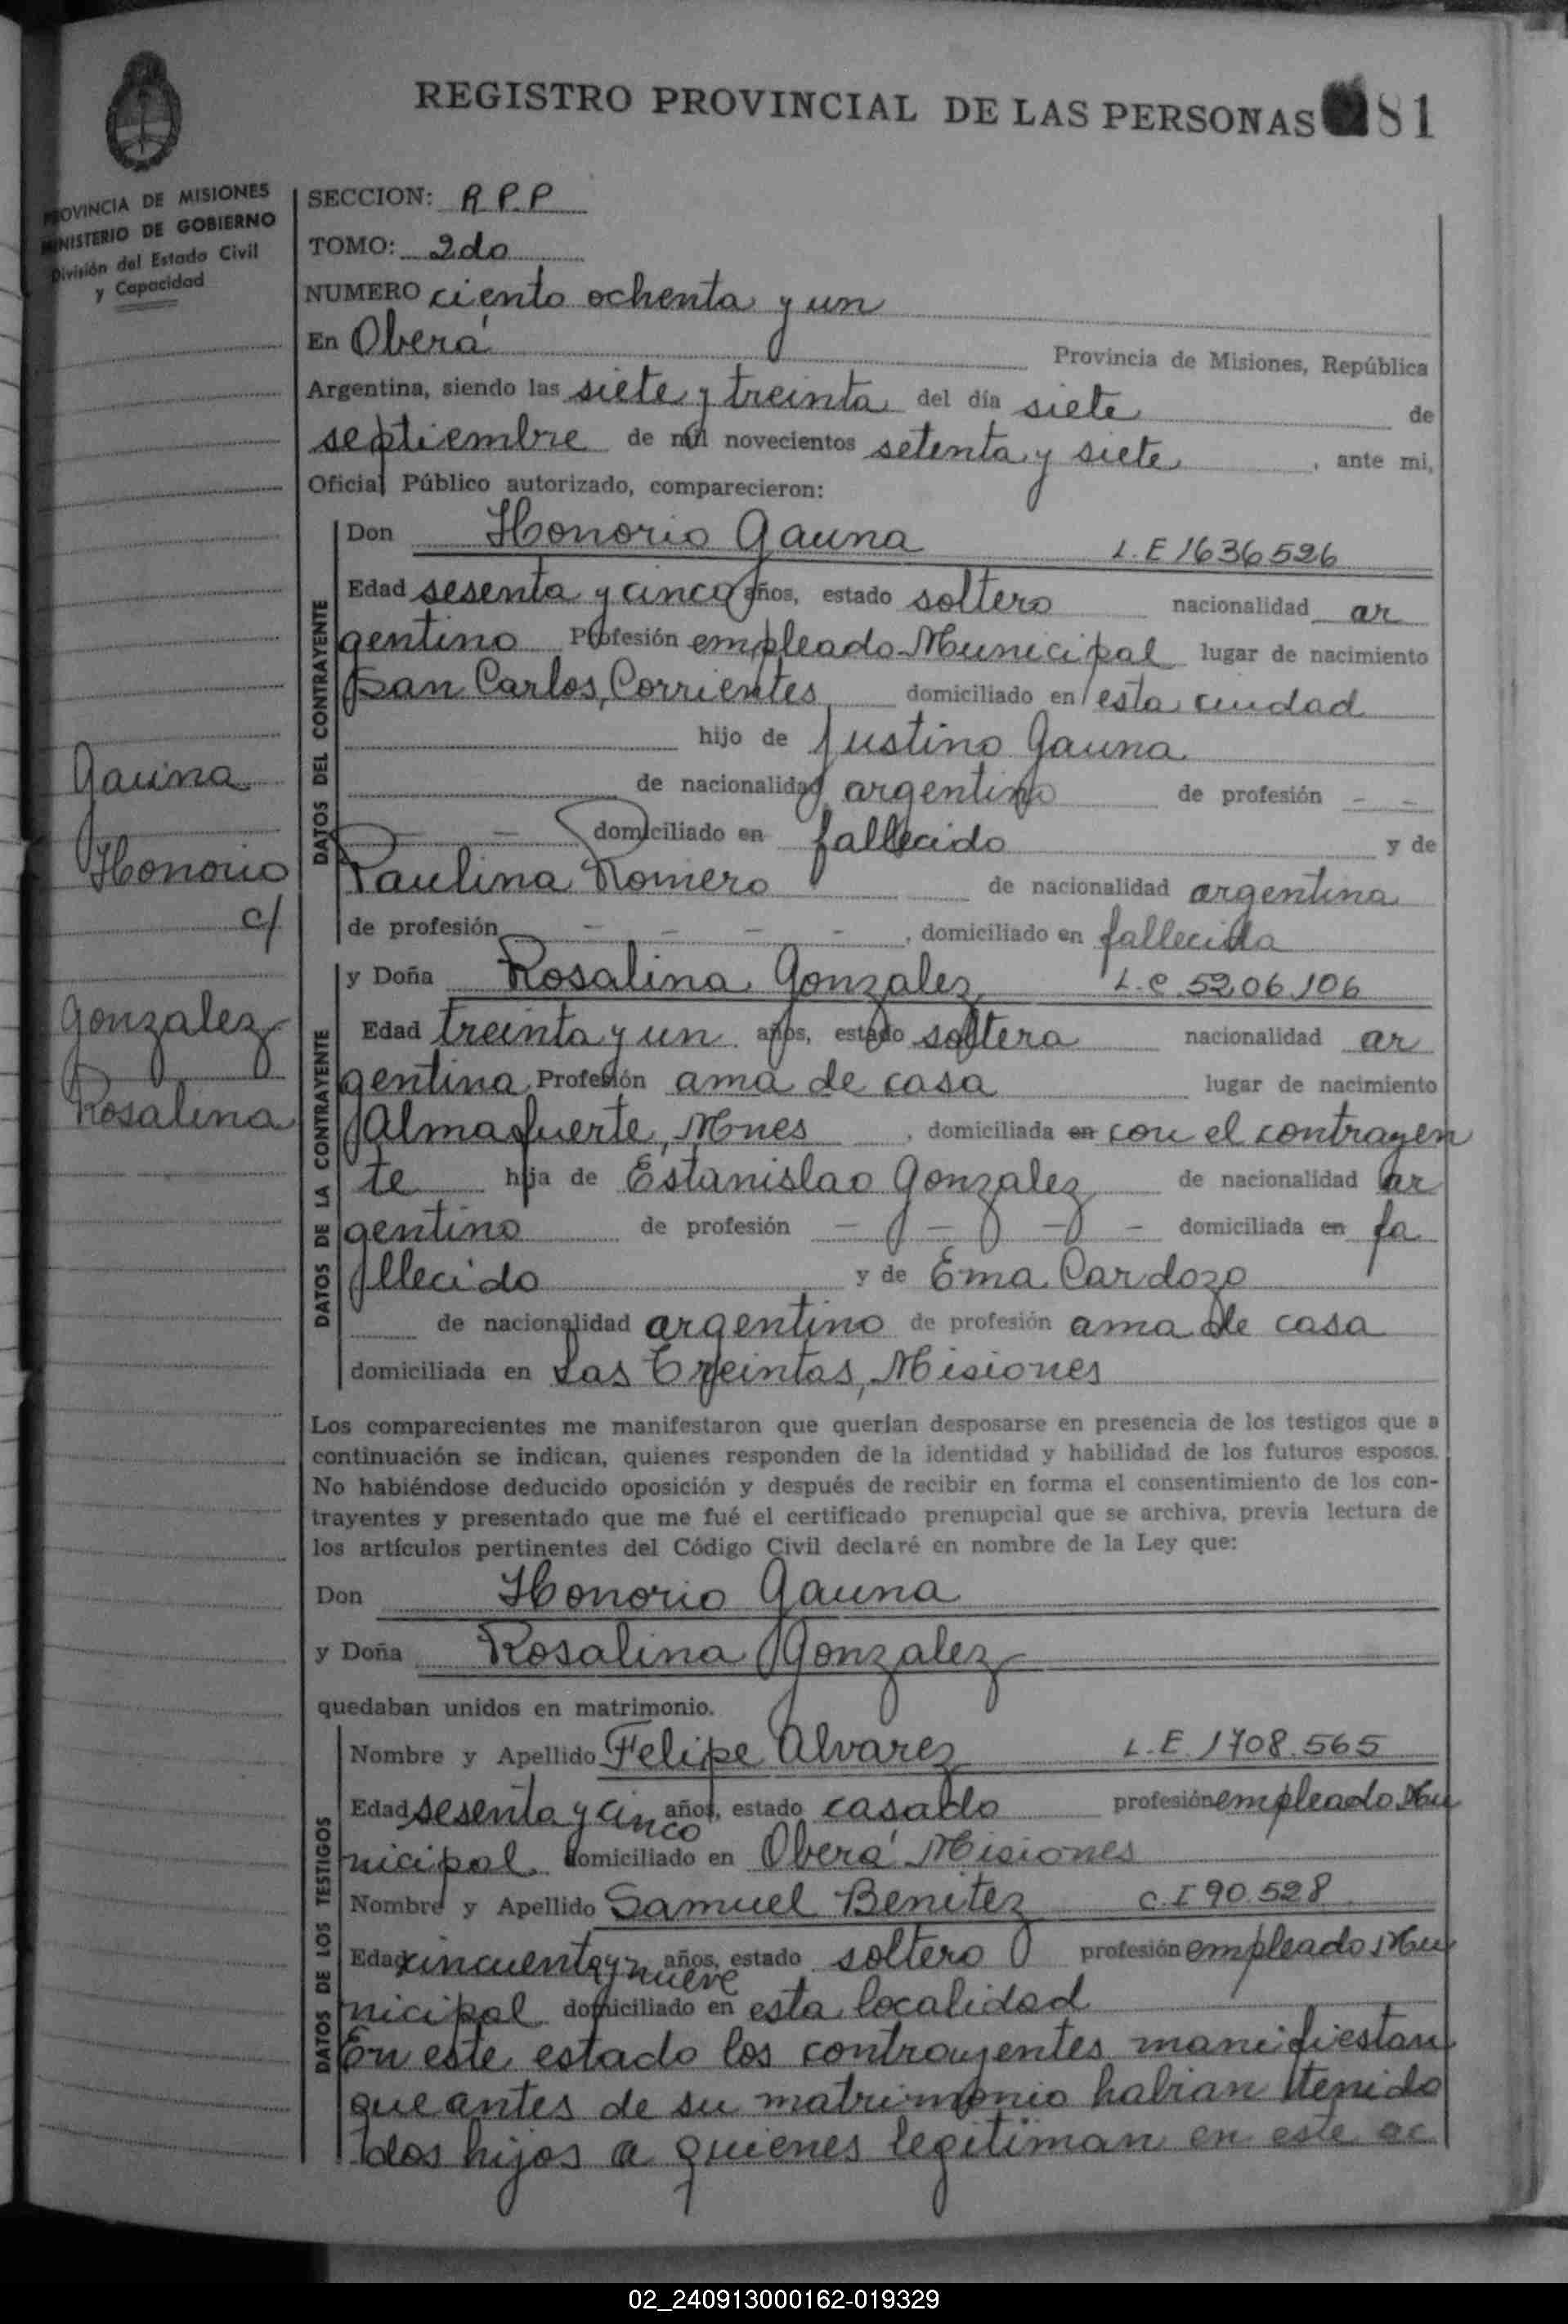 REGISTRO PROVINCIAL DE LAS PERSONAS 81
PROVINCIA DE MISIONES
MINISTERIO DE GOBIERNO
División del Estado Civil
y Capacidad
SECCION: R.P.P
TOMO: 2do
NUMERO ciento ochenta y un
En Oberá Provincia de Misiones, República
Argentina, siendo las siete y treinta del día siete de
septiembre de mil novecientos setenta y siete, ante mi,
Oficial Público autorizado, comparecieron:
Don Honorio Gauna L.E 1636526
Edad sesenta y cinco años, estado soltero nacionalidad ar
gentino Profesión empleado Municipal lugar de nacimiento
San Carlos, Corrientes domiciliado en esta ciudad
hijo de Justino Gauna
de nacionalidad argentino de profesión - -
- - domiciliado en fallecido y de
Paulina Romero de nacionalidad argentina
de profesión - - - -, domiciliado en fallecida
DATOS DEL CONTRAYENTE
Gauna
Honorio
c/
Gonzalez
Rosalina
y Doña Rosalina Gonzalez L.C. 5206106
Edad treinta y un años, estado soltera nacionalidad ar
gentina Profesión ama de casa lugar de nacimiento
Almafuerte, Mnes, domiciliada en con el contrayen
te hija de Estanislao Gonzalez de nacionalidad ar
gentino de profesión - - - - domiciliada en fa
llecido y de Ema Cardozo
de nacionalidad argentino de profesión ama de casa
domiciliada en Las Treintas, Misiones
DATOS DE LA CONTRAYENTE
Los comparecientes me manifestaron que querían desposarse en presencia de los testigos que a
continuación se indican, quienes responden de la identidad y habilidad de los futuros esposos.
No habiéndose deducido oposición y después de recibir en forma el consentimiento de los con-
trayentes y presentado que me fué el certificado prenupcial que se archiva, previa lectura de
los artículos pertinentes del Código Civil declaré en nombre de la Ley que:
Don Honorio Gauna
y Doña Rosalina Gonzalez
quedaban unidos en matrimonio.
Nombre y Apellido Felipe Alvarez L.E. 1708.565
Edad sesenta y cinco años, estado casado profesión empleado Mu
nicipal domiciliado en Oberá Misiones
Nombre y Apellido Samuel Benitez C.I 90.528
Edad cincuenta y nueve años, estado soltero profesión empleado Mu
nicipal domiciliado en esta localidad
DATOS DE LOS TESTIGOS
En este estado los contrayentes manifiestan
que antes de su matrimonio habian tenido
dos hijos a quienes legitiman en este ac
02_240913000162-019329